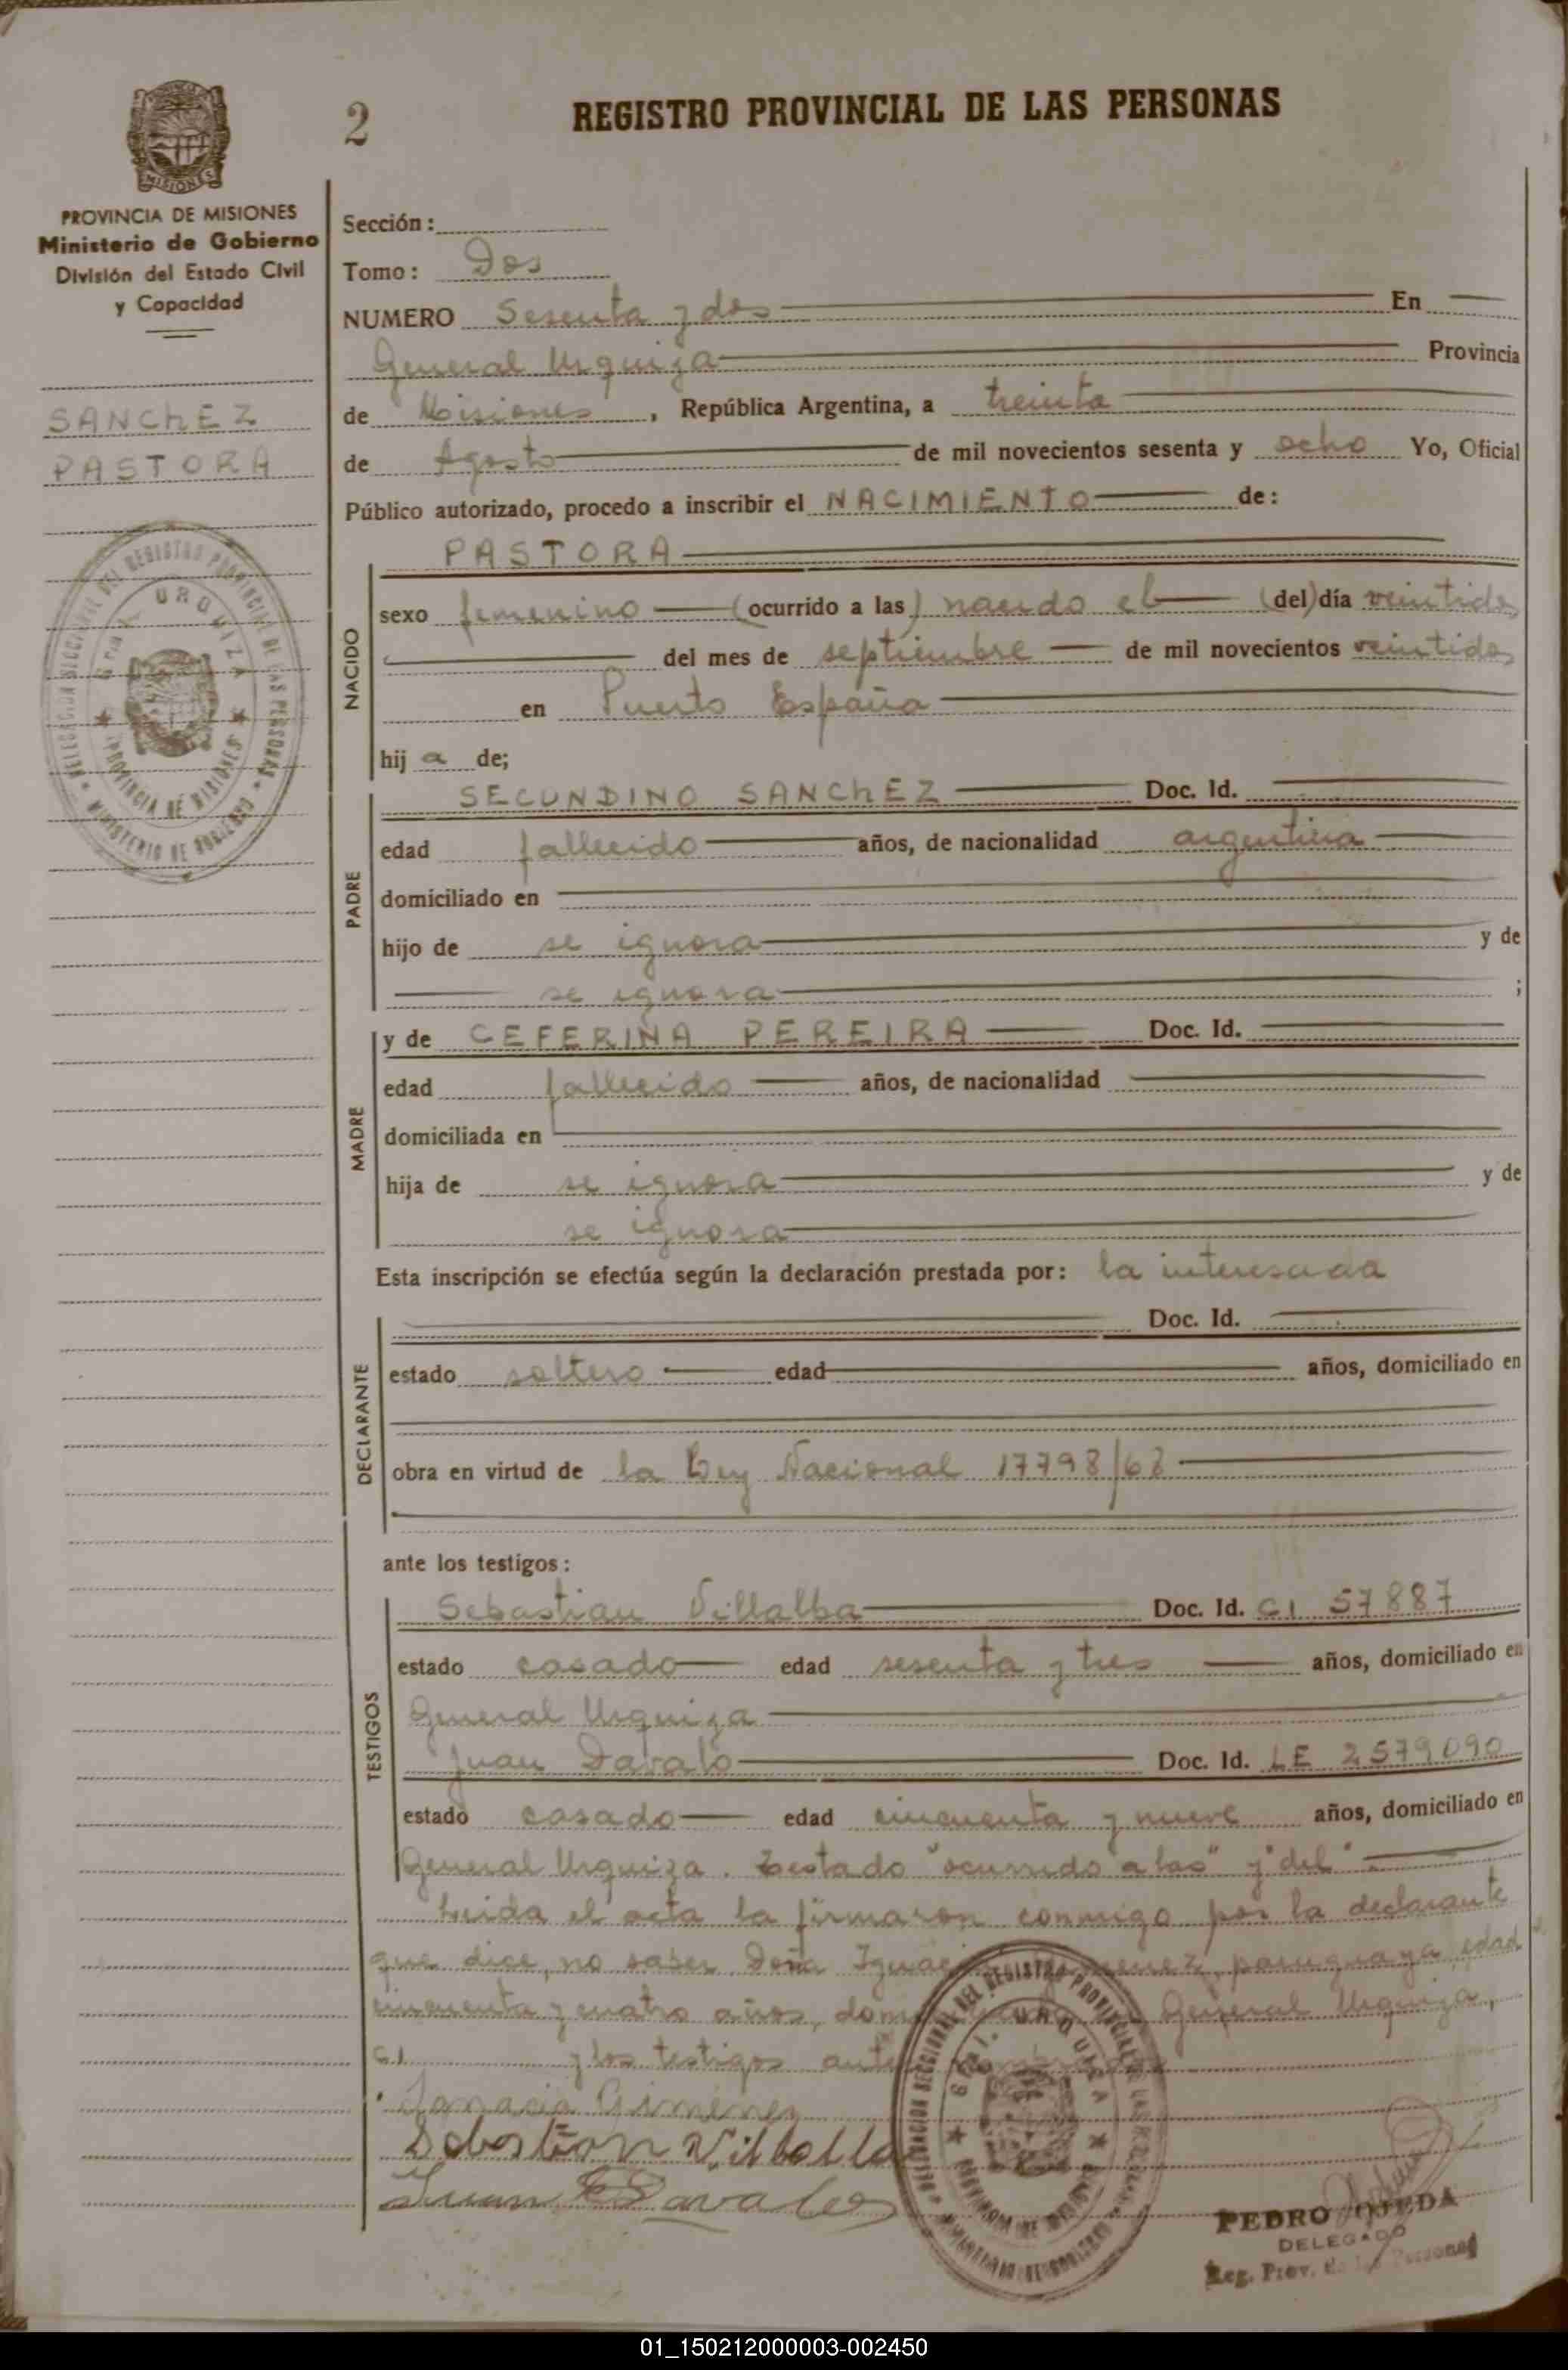 2
REGISTRO PROVINCIAL DE LAS PERSONAS
MISIONES
PROVINCIA DE MISIONES
Ministerio de Gobierno
División del Estado Civil
y Capacidad
SANCHEZ
PASTORA
Sección:
Tomo: Dos
NUMERO Sesenta y dos En
General Urquiza Provincia
de Misiones, República Argentina, a treinta
de Agosto de mil novecientos sesenta y ocho Yo, Oficial
Público autorizado, procedo a inscribir el NACIMIENTO de:
PASTORA
NACIDO
sexo femenino (ocurrido a las) nacido el (del) día veintidos
del mes de septiembre de mil novecientos veintidos
en Puerto España
hij a de;
PADRE
SECUNDINO SANCHEZ Doc. Id.
edad fallecido años, de nacionalidad argentina
domiciliado en
hijo de se ignora y de
se ignora ;
MADRE
y de CEFERINA PEREIRA Doc. Id.
edad fallecido años, de nacionalidad
domiciliada en
hija de se ignora y de
se ignora
Esta inscripción se efectúa según la declaración prestada por: la interesada
DECLARANTE
Doc. Id.
estado soltero edad años, domiciliado en
obra en virtud de la Ley Nacional 17798/68
ante los testigos:
TESTIGOS
Sebastian Villalba Doc. Id. CI 57887
estado casado edad sesenta y tres años, domiciliado en
General Urquiza
Juan Davalo Doc. Id. LE 2579090
estado casado edad cincuenta y nueve años, domiciliado en
General Urquiza. Testado "ocurrido a las" y "del".
Leida el acta la firmaron conmigo por la declarante
que dice, no saber Doña paraguaya, edad
cincuenta y cuatro años, General Urquiza,
C.I. y los testigos
Ignacia Gimenez
Sebastian Villalba
Juan Davalos
PEDRO OJEDA
DELEGADO
Reg. Prov. de las Personas
01_150212000003-002450